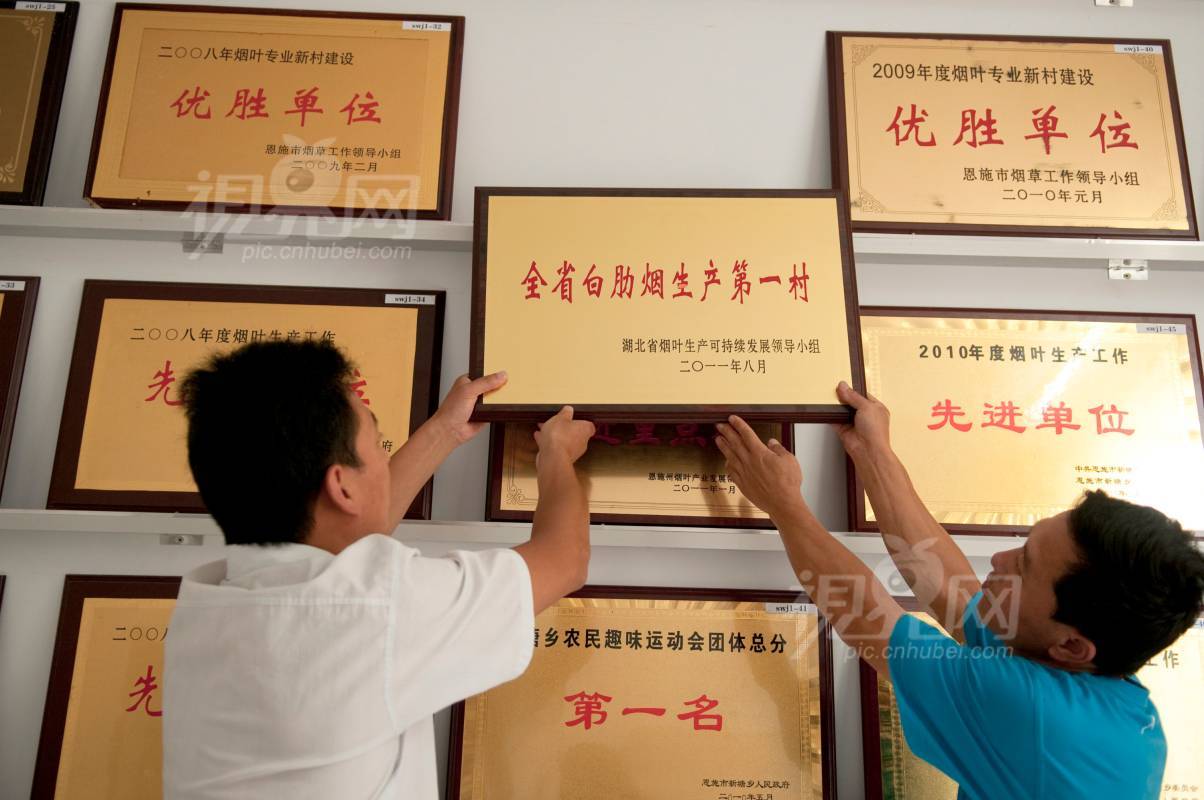 swj1-25
swj1-32
二〇〇八年烟叶专业新村建设
优胜单位
恩施市烟草工作领导小组
二〇〇九年二月
swj1-40
2009年度烟叶专业新村建设
优胜单位
恩施市烟草工作领导小组
二〇一〇年元月
视界网
pic.cnhubei.com
全省白肋烟生产第一村
湖北省烟叶生产可持续发展领导小组
二〇一一年八月
swj1-34
二〇〇八年度烟叶生产工作
先
位
swj1-45
2010年度烟叶生产工作
先进单位
中共恩施市新塘
恩施市新塘
恩施州烟叶产业发展领
二〇一一年一月
二〇〇八
先
swj1-41
塘乡农民趣味运动会团体总分
第一名
恩施市新塘乡人民政府
二〇一〇年五月
工作
视界网
pic.cnhubei.com